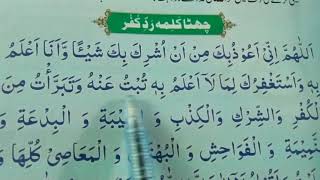 چھٹا کلمہ ردِّ کُفْر
اَللّٰهُمَّ اِنِّیْ اَعُوْذُبِكَ مِنْ اَنْ اُشْرِكَ بِكَ شَيْئًا وَّاَنَا اَعْلَمُ
بِهٖ وَ اَسْتَغْفِرُكَ لِمَا لَآ اَعْلَمُ بِهٖ تُبْتُ عَنْهُ وَ تَبَرَّأْتُ مِنَ
الْكُفْرِ وَ الشِّرْكِ وَ الْكِذْبِ وَ الْغِيْبَةِ وَ الْبِدْعَةِ وَ
النَّمِيْمَةِ وَ الْفَوَاحِشِ وَ الْبُهْتَانِ وَ الْمَعَاصِیْ كُلِّهَا